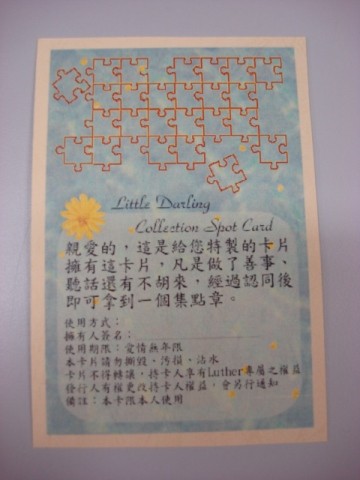 Little Darling
Collection Spot Card
親愛的，這是給您特製的卡片
擁有這卡片，凡是做了善事、
聽話還有不胡來，經過認同後
即可拿到一個集點章。
使用方式：
擁有人簽名：
使用期限：愛情無年限
本卡片請勿撕毀、污損、沾水
卡片不得轉讓，持卡人享有Luther專屬之權益
發行人有權更改持卡人權益，會另行通知
備註：本卡限本人使用